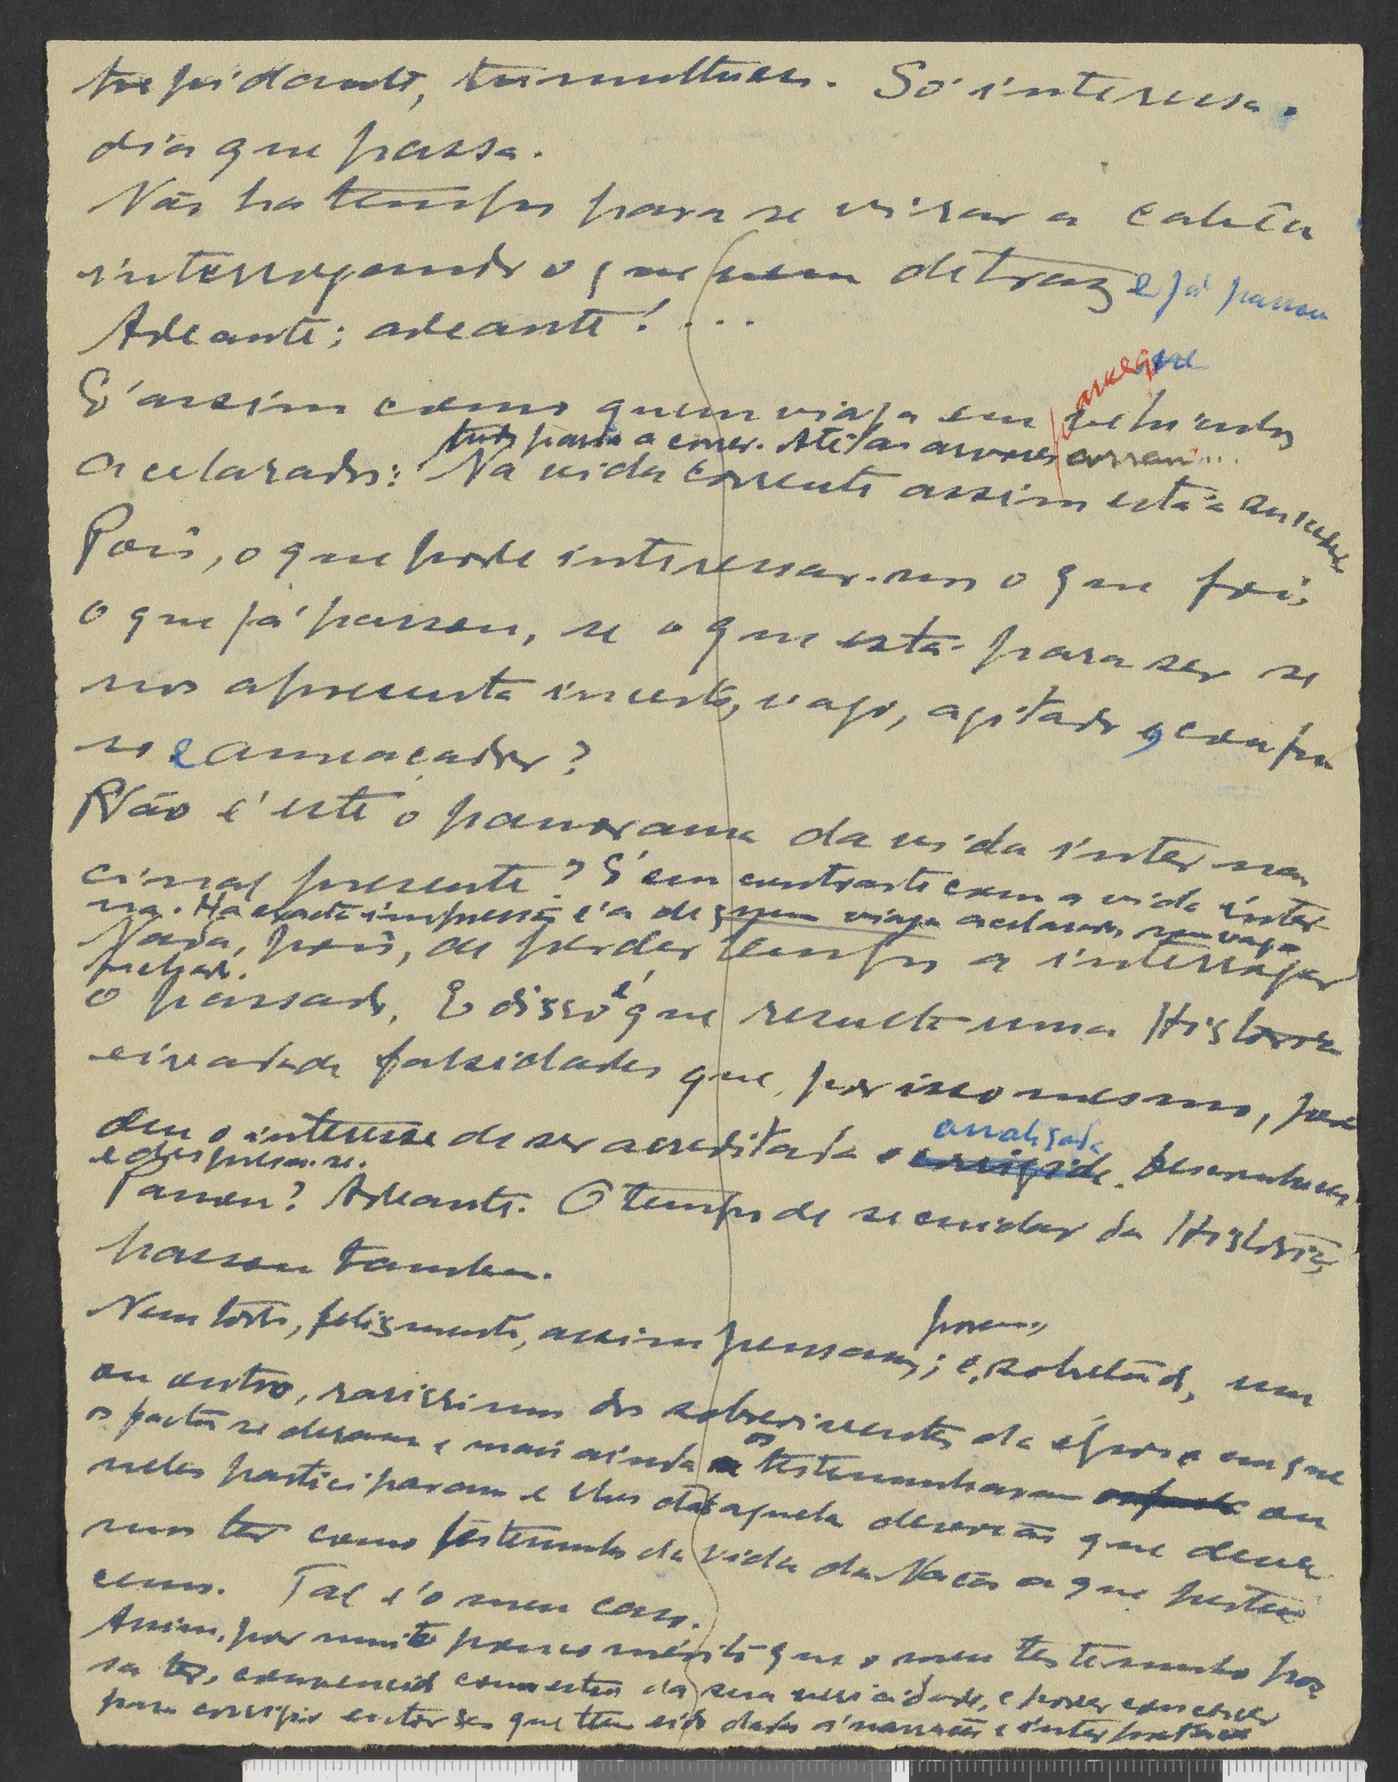 trepidante, tumultuosa. Só interessa o
dia que passa.
Não ha tempo para se virar a cabêça
interrogando o que vem detraz e já passou
Adeante; adeante! ...
E' assim como quem viaja em vehiculo
acelarado: tudo parece a correr. Até as arvores correm...
Na vida corrente assim está a
Pois, o que pode interessar-nos o que foi,
o que já passou, se o que está para ser se
nos apresenta incerto, vago, agitado, confu
so e ameaçador?
Não é este o panorama da vida interna
cional presente? E' em contraste com a vida inter
na. Ha exacta impressão é a de quem viaja acelarado num vagon
fechado.
Nada, pois, de perder tempo a interrogar
o passado. E disso é que resulta uma Historia
eivada de falsidades que, por isso mesmo, per
deu o interesse de ser acreditada e analisada. Desconhece-se
e despresa-se.
Passou? Adeante. O tempo de se cuidar da Historia,
passou tambem.
Nem todos, felizmente, assim pensam; porem, e, sobretudo, um
ou outro, rarissimo dos sobreviventes da época em que
os factos se deram e mais ainda os testemunharam ou
neles participaram e lhes dão aquela devoção que deve
mos ter como testemunho da vida da Nação a que perten
cemos. Tal é o meu caso.
Assim, por muito pouco mérito que o meu testemunho pos
sa ter, convencido como estou da sua veracidade, e poder concorrer
para corrigir entorses que tem sido dadas á narração e interpretação